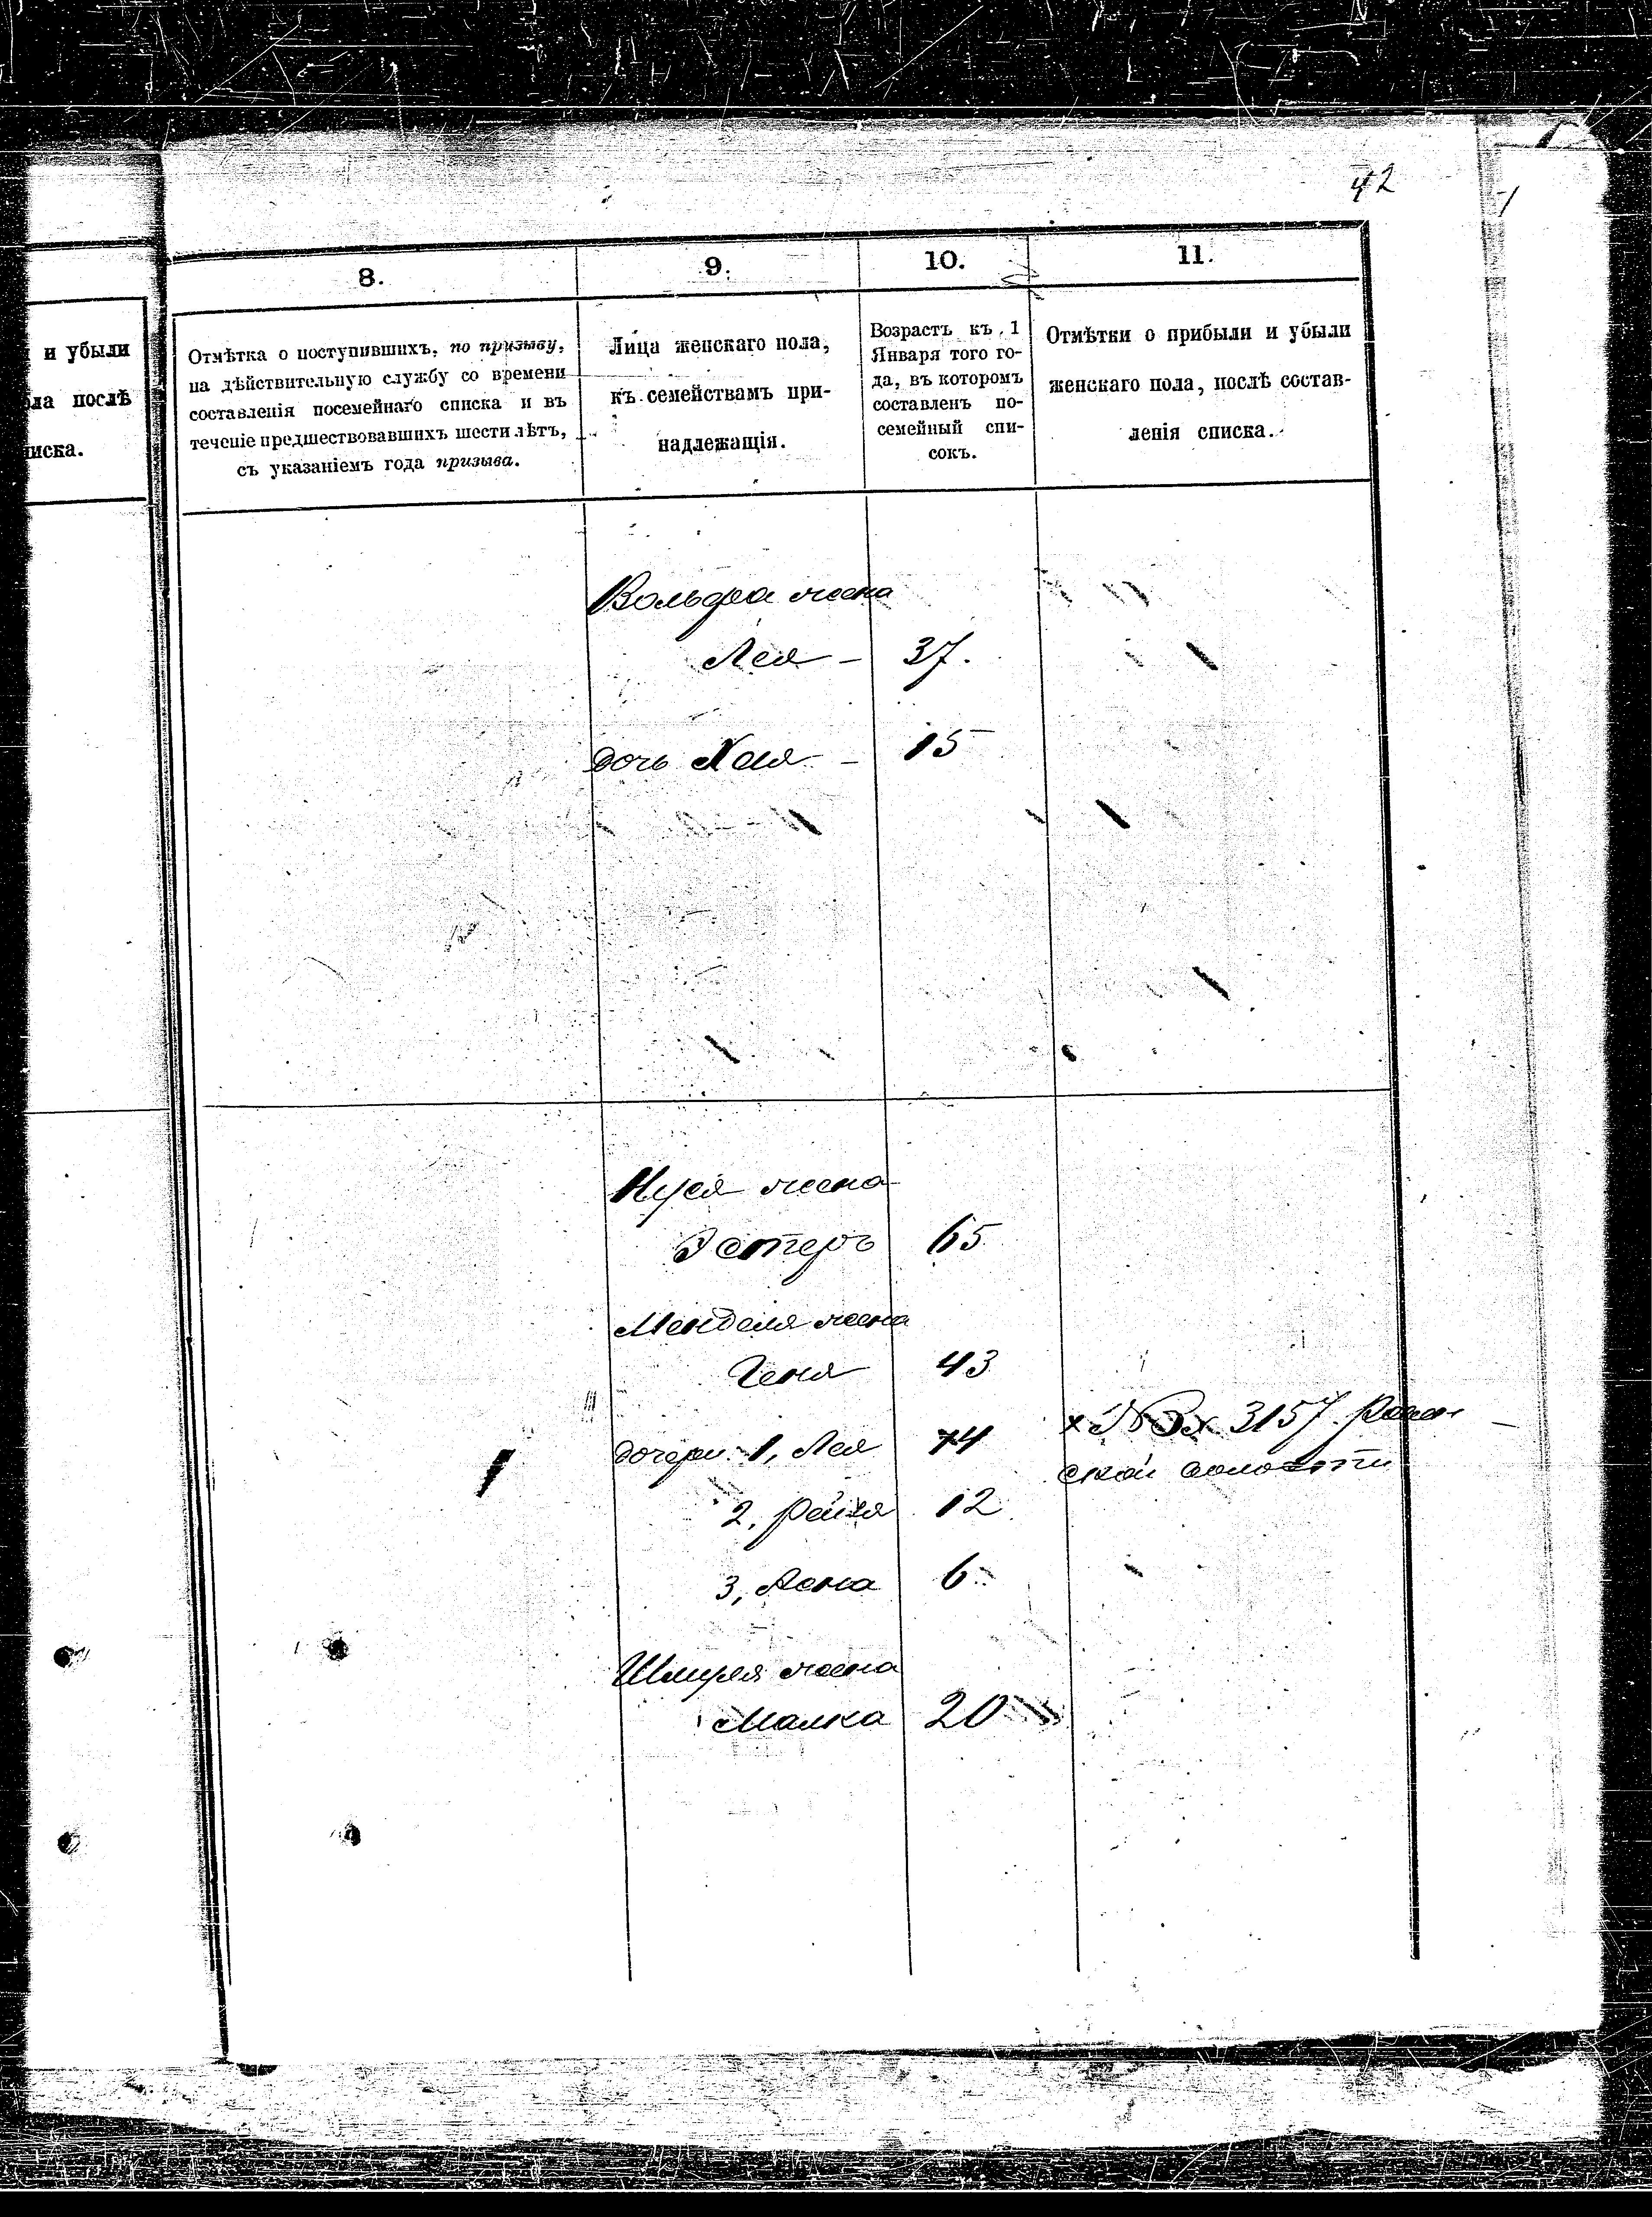 42
8.
9.
10.
11.
и убыли
ла послѣ
иска.
Отмѣтка о поступившихъ, по призыву,
на дѣйствительную службу со времени
составленія посемейнаго списка и въ
теченіе предшествовавшихъ шести лѣтъ,
съ указаніемъ года призыва.
Лица женскаго пола,
къ семействамъ при-
надлежащія.
Возрастъ къ 1
Января того го-
да, въ которомъ
составленъ по-
семейный спи-
сокъ.
Отмѣтки о прибыли и убыли
женскаго пола, послѣ состав-
ленія списка.
Вольфа жена
Лея - 37.
дочь Хая - 15
жена
Эстеръ 65
Менделя жена
Геня 43
дочери 1, Лея 14
х 3157
ской волости
2, 12
3, 6
жена
Малка 20